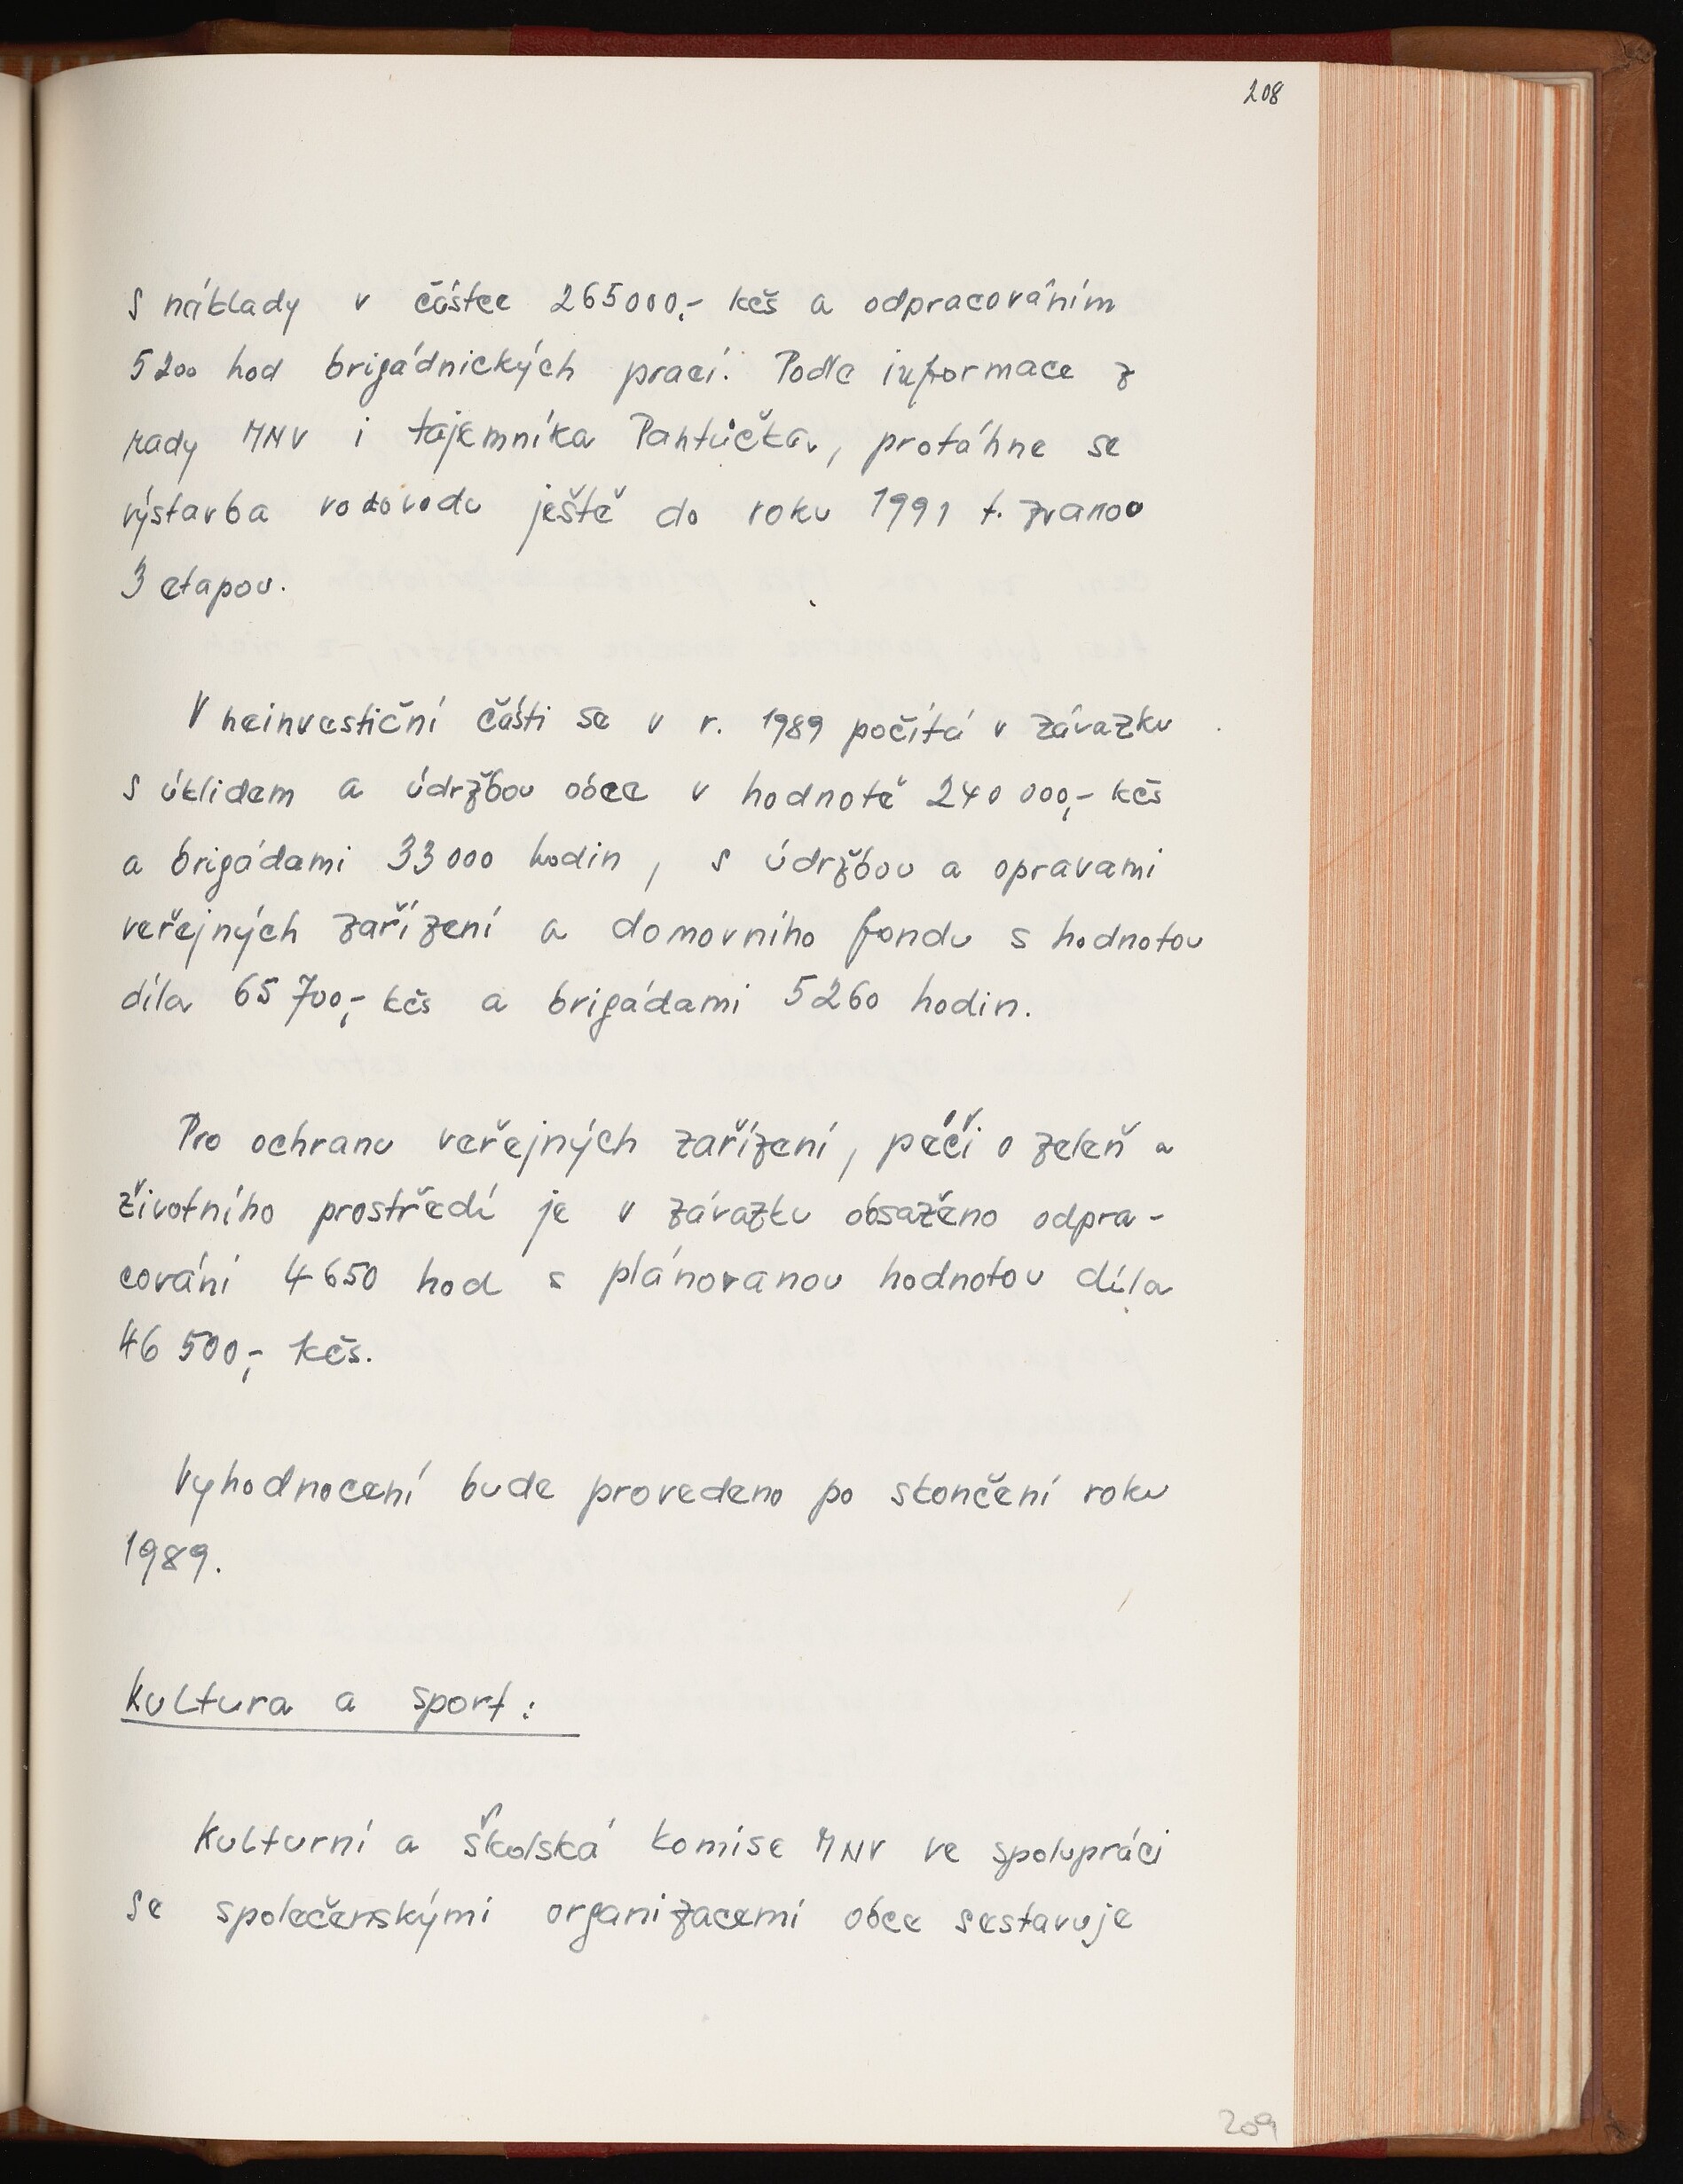 208
s náklady v částce 265000,- kčs a odpracováním
5200 hod brigádnických prací. Podle informace z
rady MNV i tajemníka Pantůčka, protáhne se
výstavba vodovodu ještě do roku 1991 t. zvanou
3 etapou.
V neinvestiční části se v r. 1989 počítá v závazku
s úklidem a údržbou obce v hodnotě 240 000,- kčs
a brigádami 33 000 hodin, s údržbou a opravami
veřejných zařízení a domovního fondu s hodnotou
díla 65 700,- kčs a brigádami 5260 hodin.
Pro ochranu veřejných zařízení, péči o zeleň a
životního prostředí je v závazku obsaženo odpra-
cování 4650 hod s plánovanou hodnotou díla
46 500,- kčs.
Vyhodnocení bude provedeno po skončení roku
1989.
Kultura a sport:
Kulturní a školská komise MNV ve spolupráci
se společenskými organizacemi obce sestavuje
209